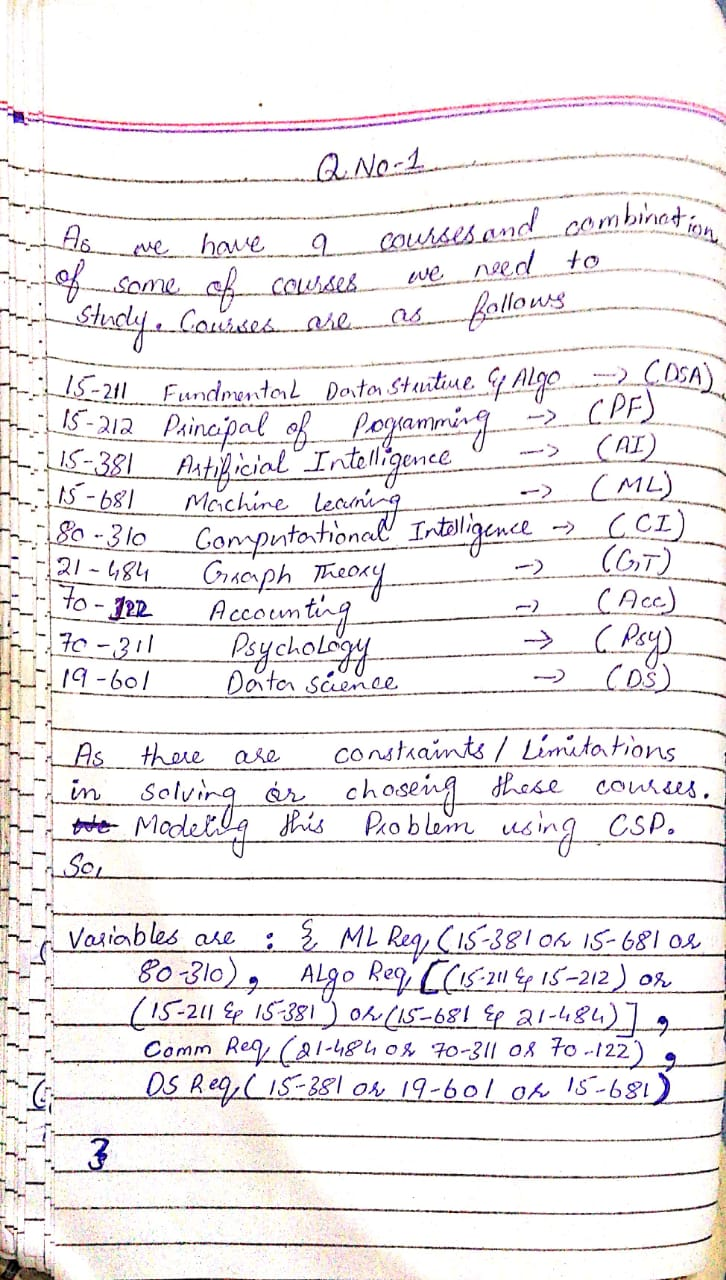 Q.No-1
As we have 9 courses and combination
of some of courses we need to
study. Courses are as follows
15-211 Fundmental Data Structure & Algo → (DSA)
15-212 Principal of Programming → (PF)
15-381 Artificial Intelligence → (AI)
15-681 Machine learning → (ML)
80-310 Computational Intelligence → (CI)
21-484 Graph Theory → (GT)
70-122 Accounting → (Acc)
70-311 Psychology → (Psy)
19-601 Data science → (DS)
As there are constraints/Limitations
in solving or choseing these courses.
We Modeling this Problem using CSP.
So,
Variables are : { ML Req, (15-381 or 15-681 or
80-310), Algo Req, [(15-211 & 15-212) or
(15-211 & 15-381) or (15-681 & 21-484)],
Comm Req, (21-484 or 70-311 or 70-122),
DS Req, (15-381 or 19-601 or 15-681)
}